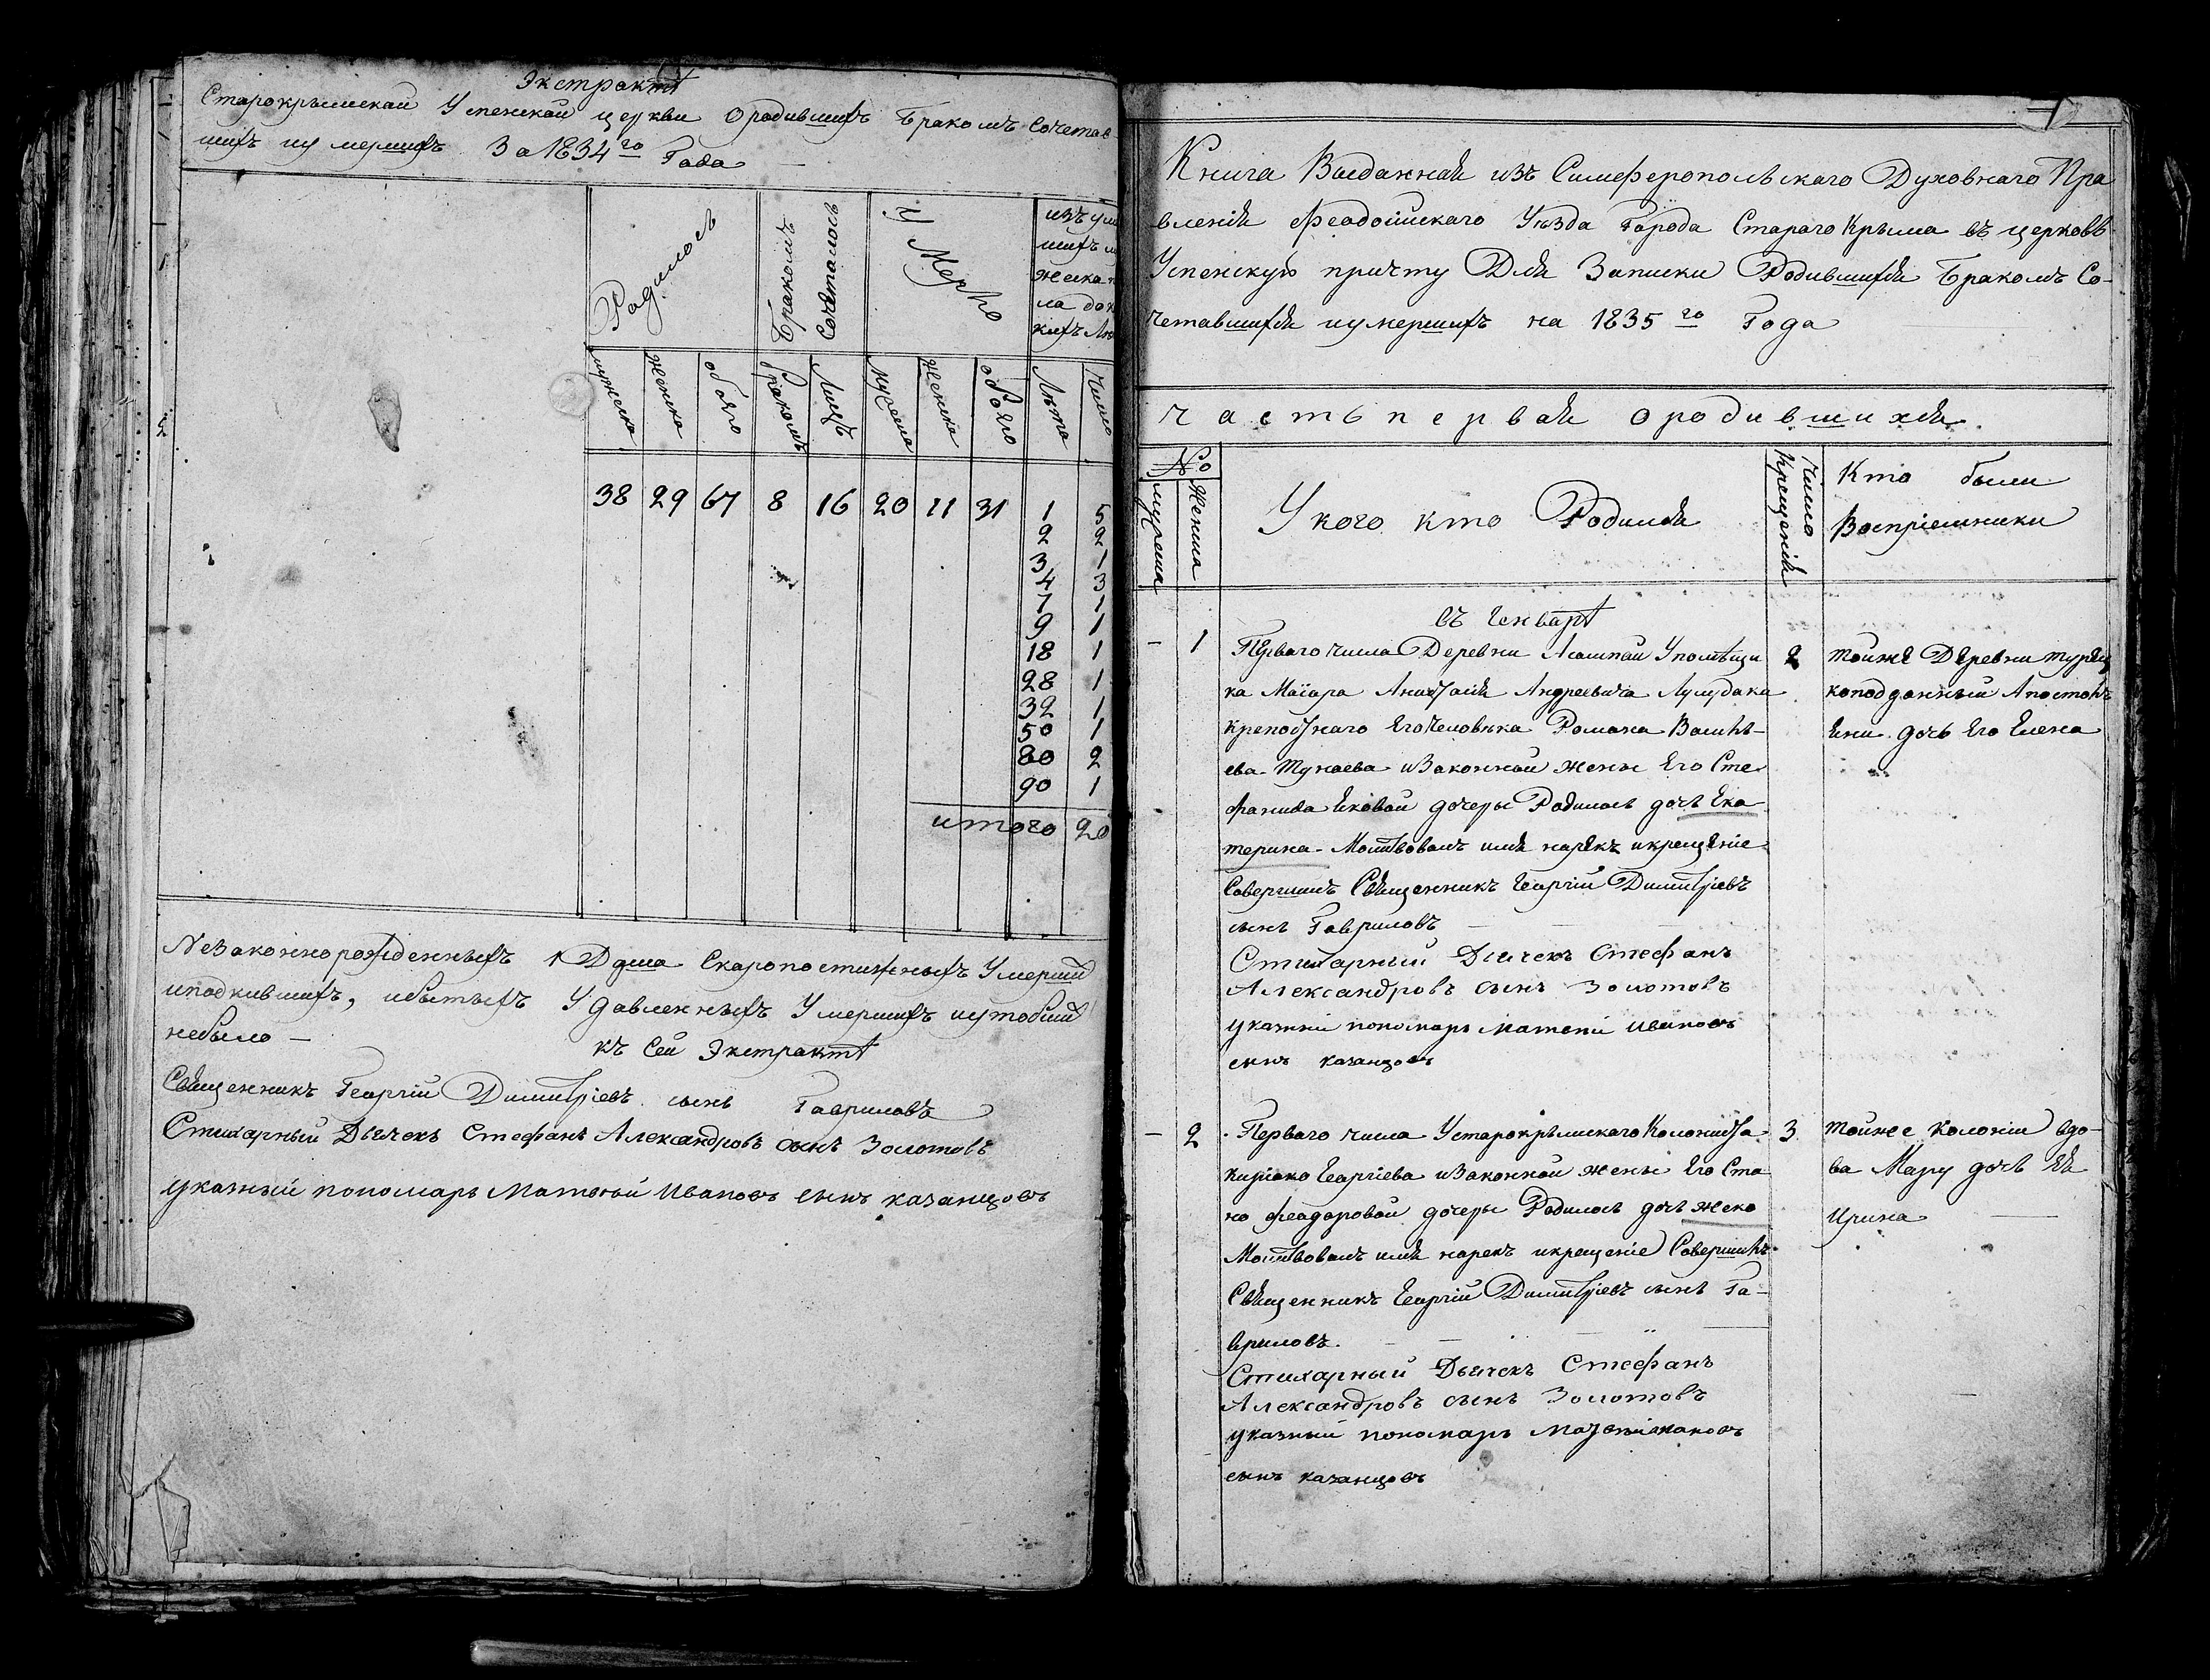 Экстрактъ
Старокрымской Успенской церкви ородившихъ Бракомъ Сочетав
шихъ иумершихъ За 1834го Года
Родилось
Бракомъ Сочеталось
Умерло
изъ уме
шихъ м
жеска п
ла до к
кихъ лѣ
мужеска женска обоего Бракомъ Лицъ мужеска женска обоего Лѣта Число
38 29 67 8 16 20 11 31 1 5
2 2
3 1
4 3
7 1
9 1
18 1
28 1
32 1
50 1
80 2
90 1
итого 20
Незаконнорожденныхъ 1 Душа Скоропостижныхъ Умерши
убытыхъ Удавленныхъ Умершихъ
небыло —
къ Сей Экстрактѣ
Священникъ Георгій Димитріевъ сынъ Гавриловъ
Стихарный Дьячекъ Стефанъ Александровъ сынъ Золотовъ
указный пономарь Матвѣй Ивановъ сынъ казанцовъ
Книга Выданная изъ Симферопольскаго Духовнаго Пра
вленія Феодосійскаго Уѣзда Города Стараго Крыма въ церковь
Успенскую причту Для Записки Родившихся Бракомъ Со-
четавшихся иумершихъ на 1835го Года
Часть первая ородившихся.
№
мужеска
женска
У кого кто Родился
Число крещенія
Кто были
Воспріемники
въ Генварѣ
– 1 Перваго числа Деревни Упомѣщи
ка Маіора Андреевича
крепостнаго Его человѣка Романа Василь-
ева изаконной жены Его Сте
фаниды дочеры Родилась дочь Ека
терина - Молитвовалъ имя нарекъ икрещеніе
Совершилъ Священникъ Георгій Димитріевъ
сынъ Гавриловъ
Стихарный Дьячекъ Стефанъ
Александровъ сынъ Золотовъ
указный пономарь Матвѣй Ивановъ
сынъ казанцовъ
2
тойже Деревни турец
коподданный Апостолъ
дочь Его Елена
– 2 Перваго числа Устарокрымскаго Колониста
Киріако Георгіева изаконной жены Его Ста
но Феодоровой дочеры Родилась дочь
Молитвовалъ имя нарекъ икрещеніе Совершилъ
Священникъ Георгій Димитріевъ сынъ Га-
вриловъ.
Стихарный Дьячекъ Стефанъ
Александровъ сынъ Золотовъ
указный пономарь Матвѣй Ивановъ
сынъ казанцовъ
3
тойже колоніи вдо-
ва Мару дочь Ея
Ирина